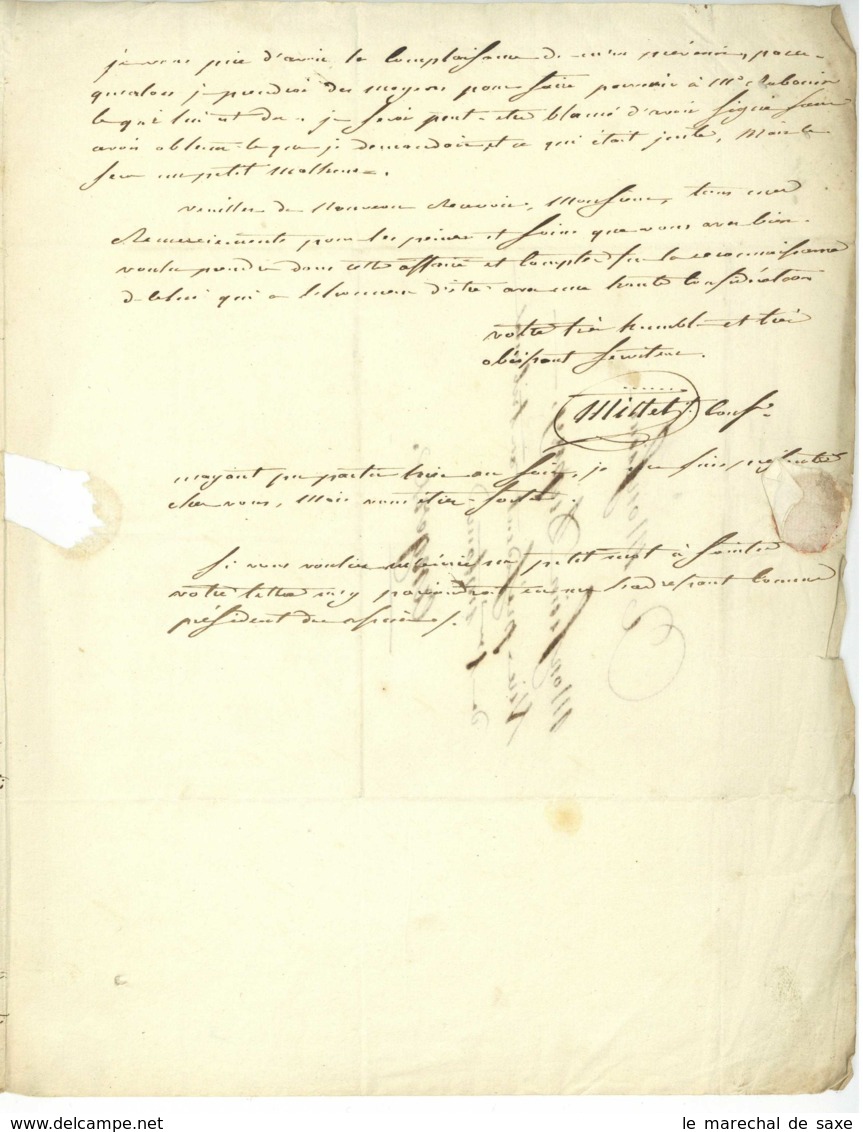 je vous prie d'avoir la complaisance de m'en prévenir, parce
qu'alors je prendrai des moyens pour faire parvenir à Mr
ce qui lui est du. je serai peut-etre blamé d'avoir signé sans
avoir obtenu ce que je demandois, et ce qui était juste, Mais ce
sera un petit Malheur.
veuillez de Nouveau Recevoir, Monsieur, tous mes
Remerciements pour les peines et soins que vous avez bien
voulu prendre dans cette affaire et Comptez sur la reconnaissance
de celui qui a l'honneur d'être avec une haute Considération
votre très humble et très
obéissant serviteur.
Mittet
n'ayant pu partir hier au soir, je me suis
chez vous, Mais vous étiez sorti.
Si vous vouliez un petit mot à
votre lettre m'y parviendrait en me l'adressant Comme
président des assises.
le marechal de saxe